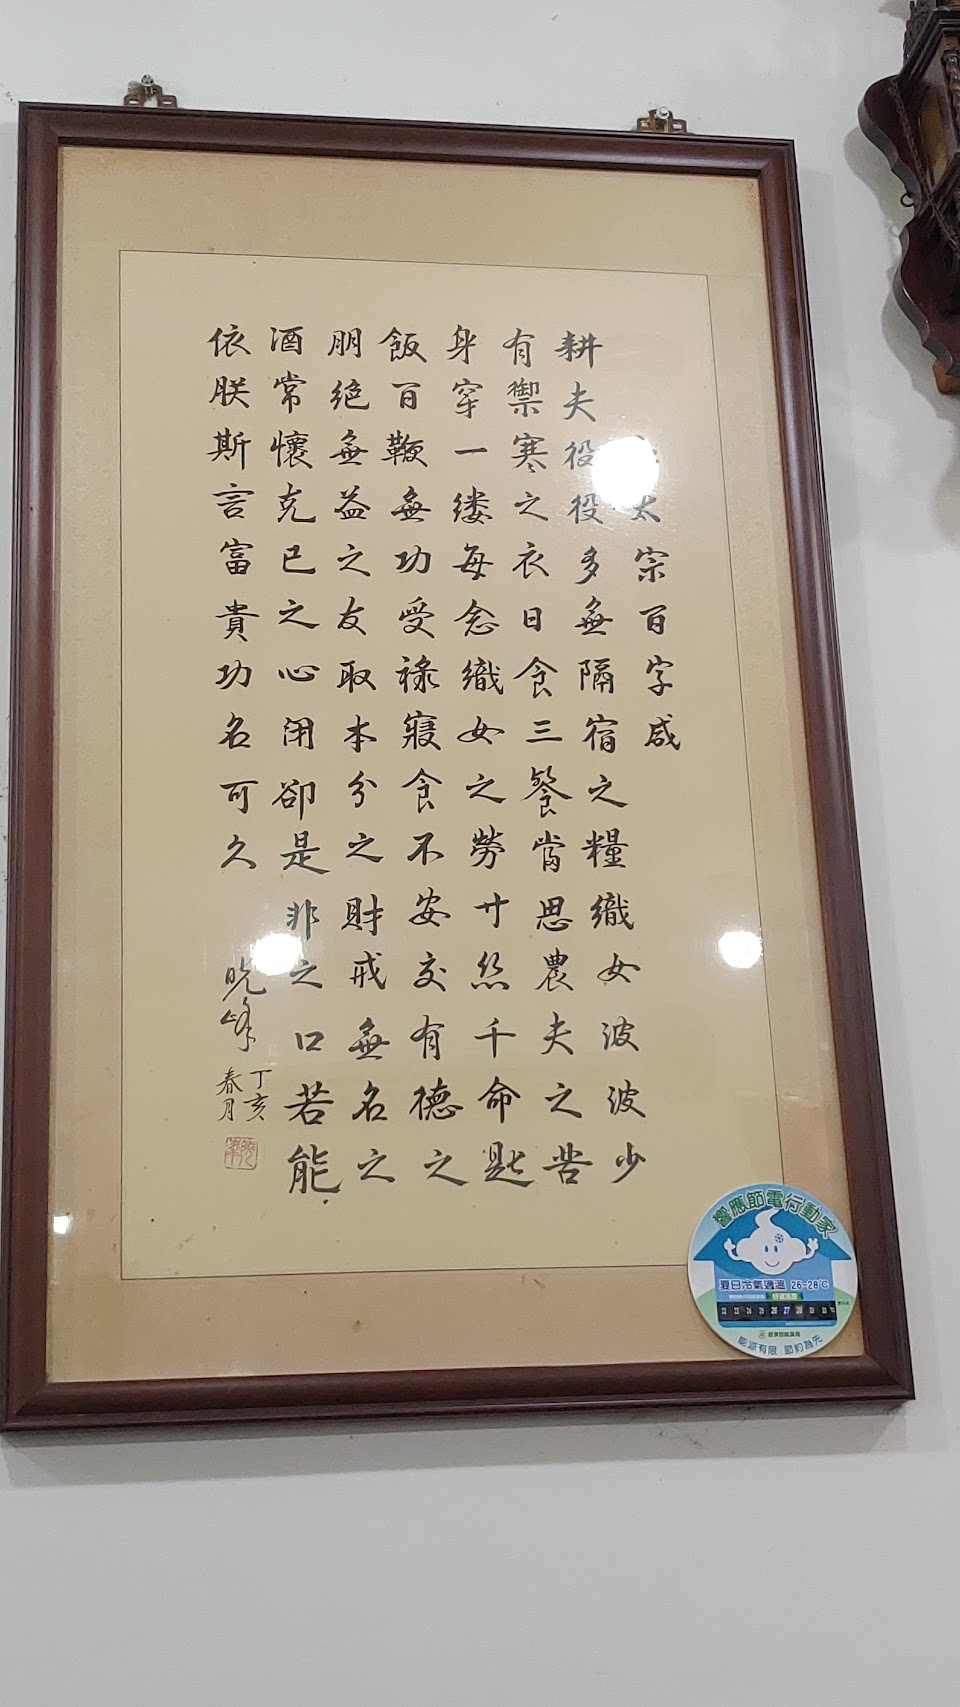 太宗百字咸
耕夫役役多無隔宿之糧織女波波少
有禦寒之衣日食三餐當思農夫之苦
身穿一縷每念織女之勞寸絲千命匙
飯百鞭無功受祿寢食不安交有德之
朋絕無益之友取本分之財戒無名之
酒常懷克己之心闭卻是非之口若能
依朕斯言富貴功名可久
晚峰
丁亥
春月
響應節電行動家
夏日冷氣適溫 26-28℃
舒適溫度
22 23 24 25 26 27 28 29 30 ℃
經濟部能源局
能源有限 節約為先